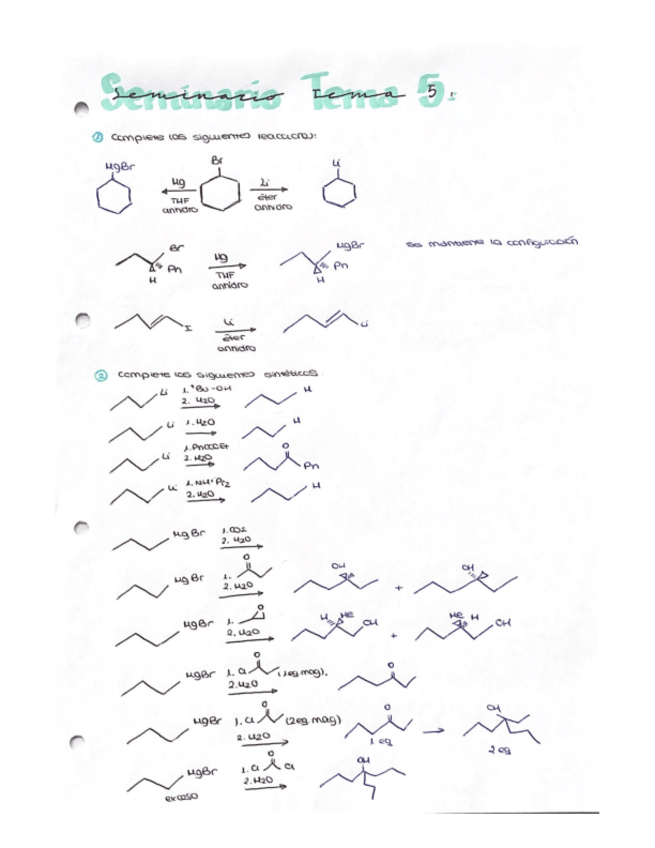 Seminario Tema 5:
① Complete las siguientes reacciones:
MgBr Br Li
Mg Li
THF éter
anhidro anhidro
Br Mg MgBr se mantiene la configuración
Ph THF Ph
H anhidro H
I Li Li
éter
anhidro
② Complete las siguientes sintéticos:
Li 1. ᵗBu-OH H
2. H₂O
Li 1. H₂O H
Li 1. PhCOOEt O
2. H₂O Ph
Li 1. NHⁱPr₂ H
2. H₂O
MgBr 1. CO2
2. H₂O
MgBr 1. O OH + OH
2. H₂O
MgBr 1. O H Me OH + Me H OH
2. H₂O
MgBr 1. Cl O (1eq mag). O
2. H₂O
MgBr 1. Cl O (2eq mag) O → OH
2. H₂O 1 eq 2 eq
MgBr 1. Cl O Cl OH
2. H₂O
exceso